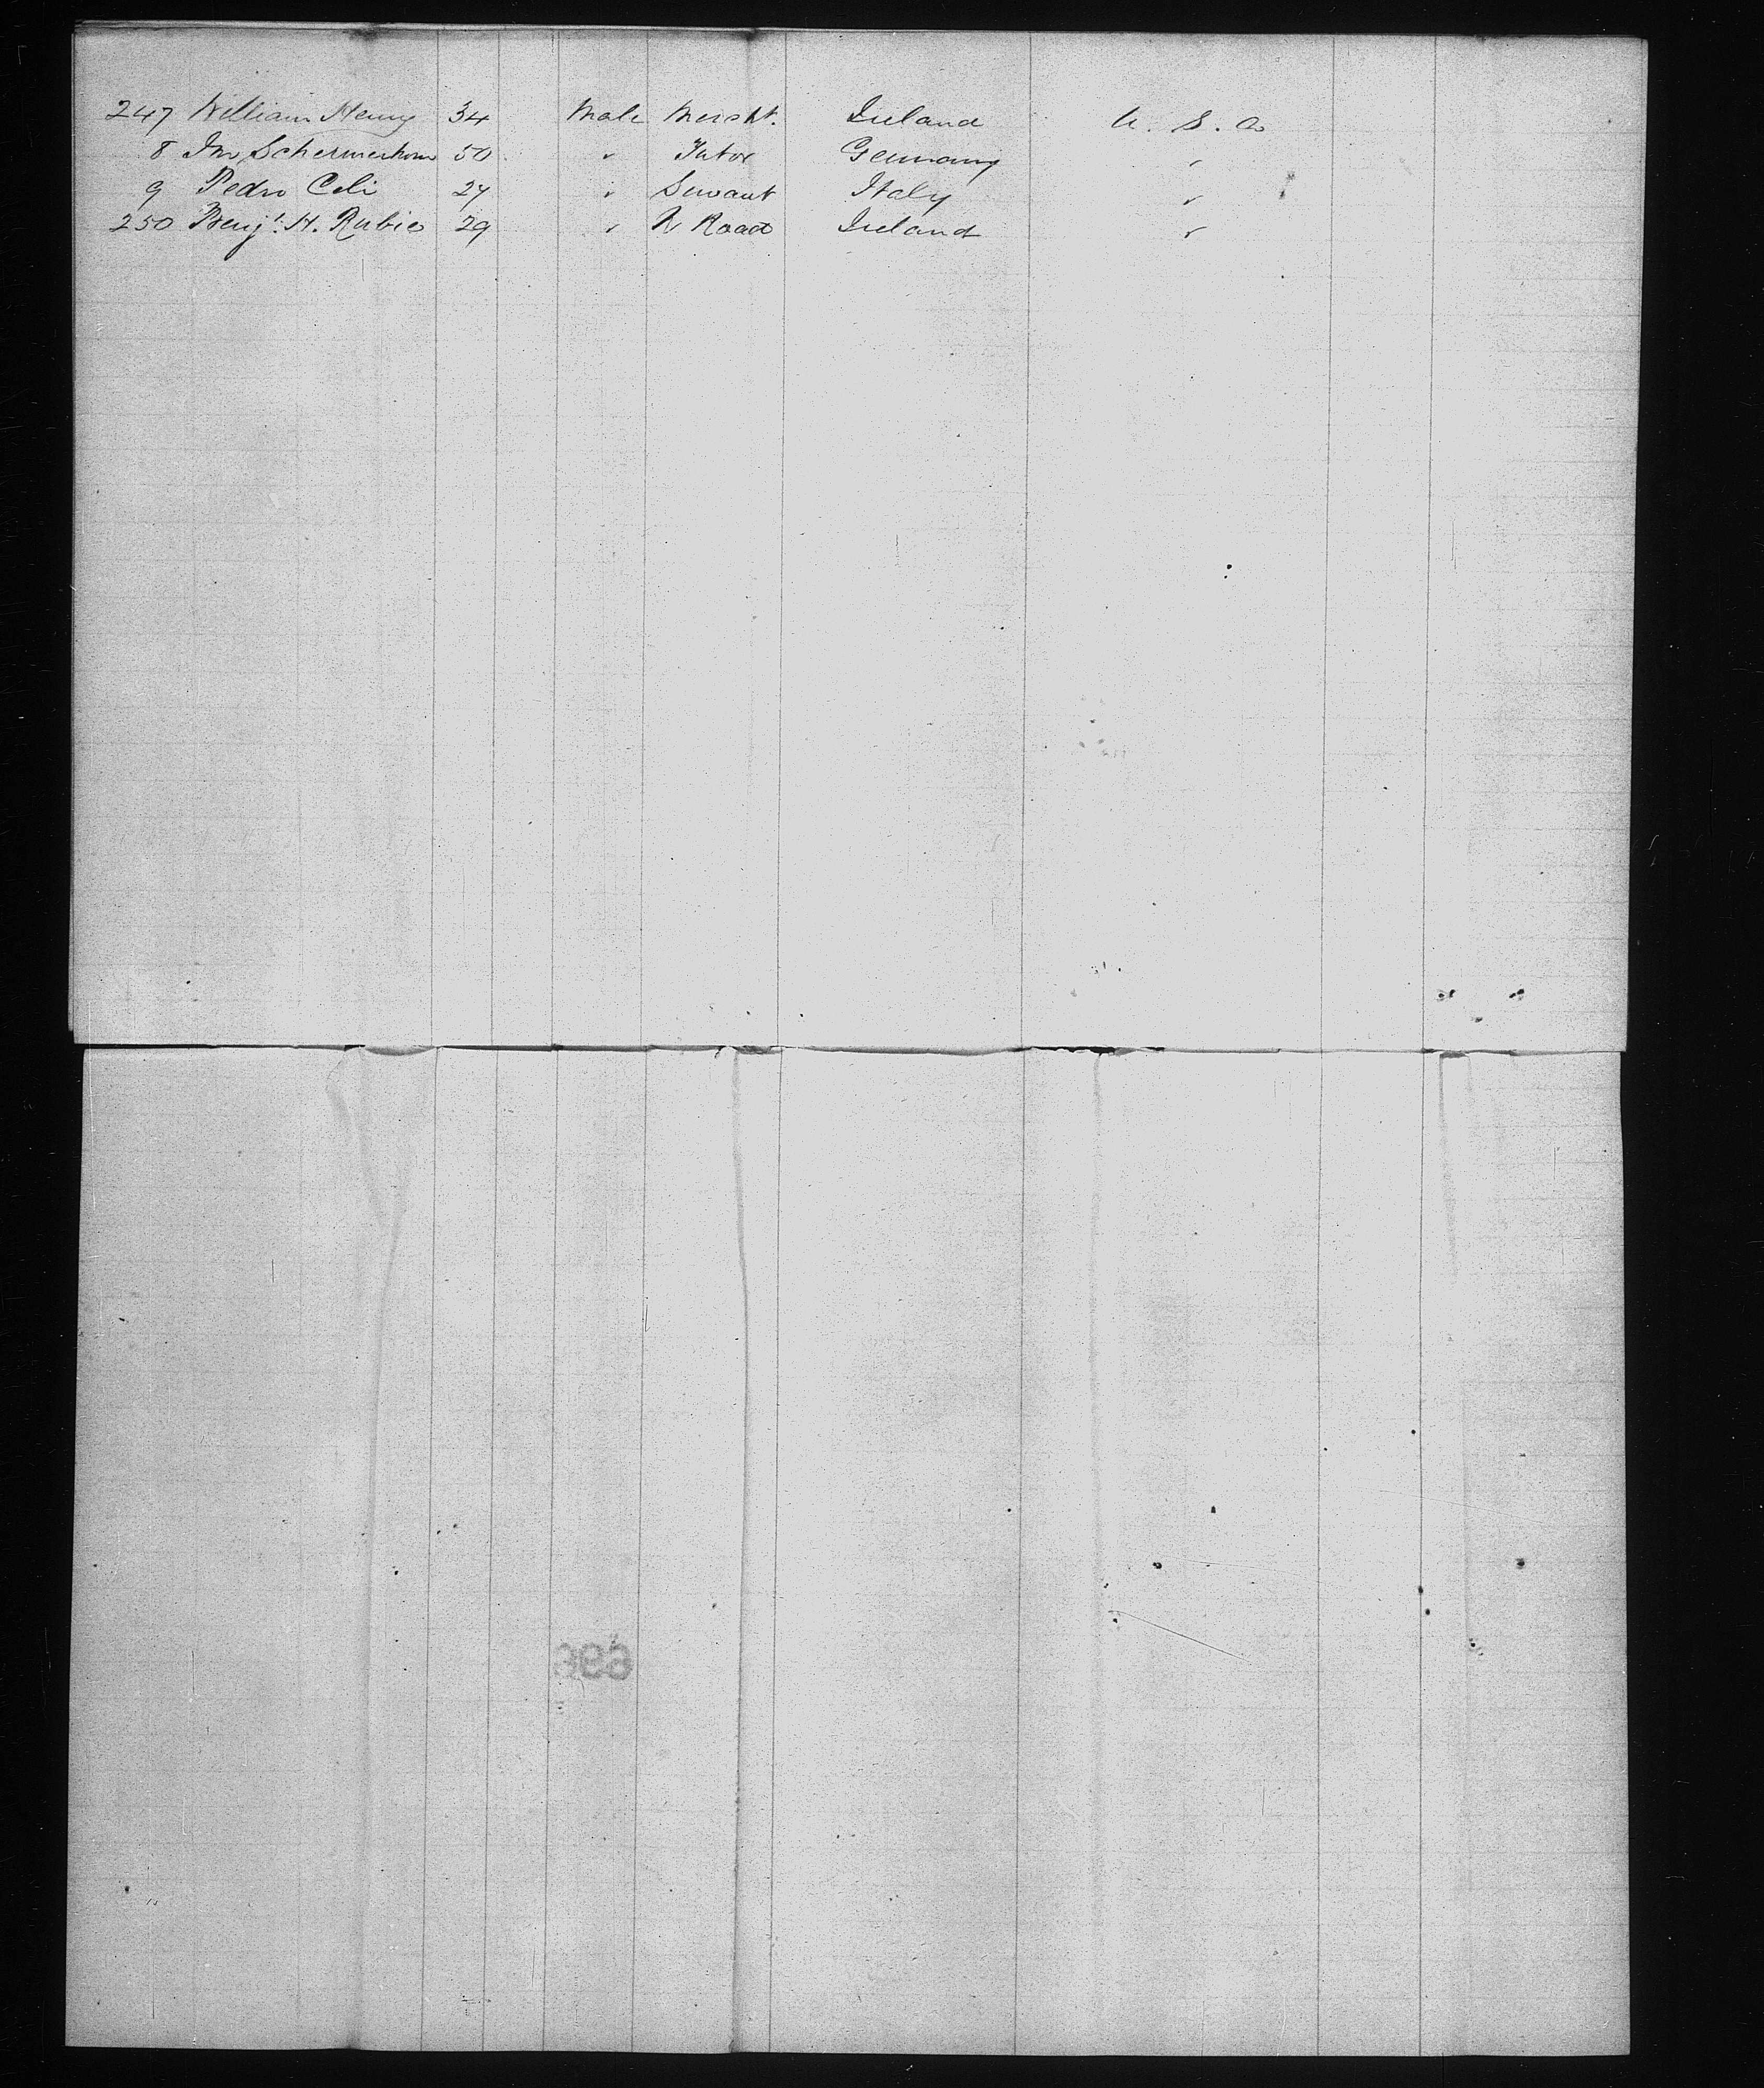 247 William Henry 34 Male Mercht. Ireland U. S. A
8 Jno Schermerhorn 50 " Tutor Germany "
9 Pedro Celi 27 " Servant Italy "
250 Benjn. H. Rubie 29 " R Road Ireland "